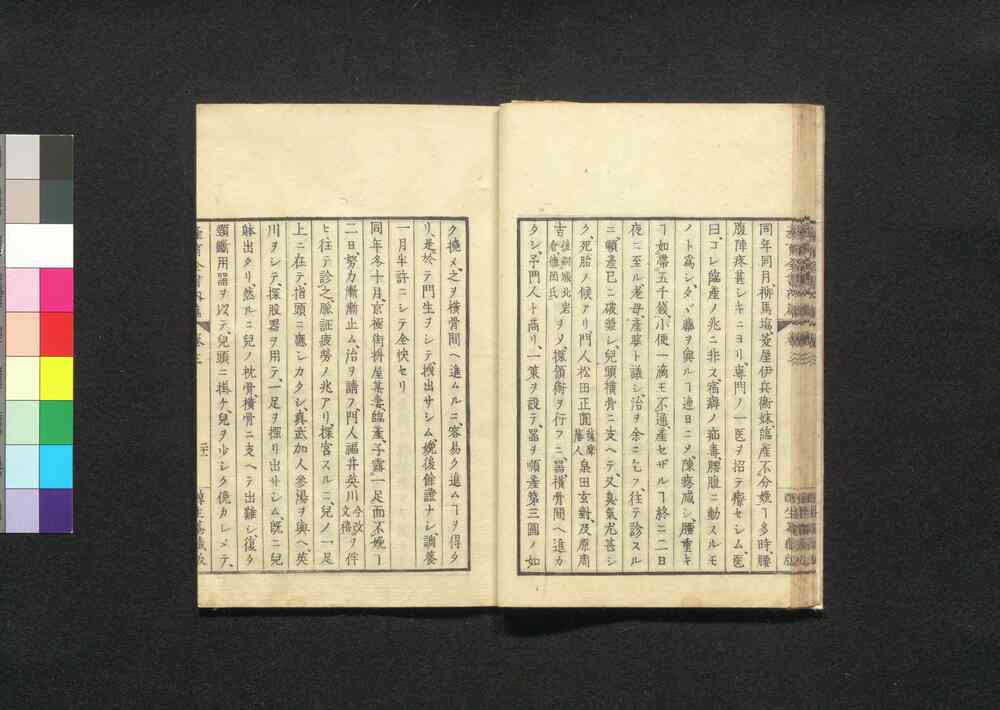 同年同月、柳馬塲、菱屋伊兵衛妹、臨產不分娩ヿ多時、腰
腹陣疼甚シキニヨリ、專門ノ一医ヲ招テ療セシム、医
曰、コレ臨產ノ兆ニ非ス、宿癖ノ痼毒、腰腹ニ動スルモ
ノト爲シ、タヾ藥ヲ與ルヿ連日ニメ、陳疼减シ、腰重キ
ヿ如帶五千錢、小便一滴モ不通、產セザルヿ終ニ二日
夜ニ至ル、老母、產寧ト議シ、治ヲ余ニ乞フ、往テ診スル
ニ、順產已ニ破漿シ、兒頭橫骨ニ支ヘテ、又臭氣尤甚シ
ク、死胎ノ候アリ、門人松田正圓薩摩藩人泉田玄對、及原周
吉ヲメ、探頷術ヲ行フニ、器橫骨間ヘ進カ
タシ、予門人ト高リ、一策ヲ設テ、器ヲ順產第三圖ノ如
ク撓メ、之ヲ橫骨間ヘ進ムルニ、容易ク進ムヿヲ得タ
リ、是於テ門生ヲシテ援出サシム、娩後餘證ナシ、調養
一月半許ニシテ全快セリ
同年冬十月、京極街枡屋某妻、臨產、子露一足、而不娩ヿ
二日、努力漸漸止ム、治ヲ請フ、門人福井英川今改文禱ヲ伴
ヒ往テ診之、脈証疲勞ノ兆アリ、探宮スルニ、兒ノ一足
上ニ在テ、指頭ニ應シカタシ、眞武加人參湯ヲ與ヘ、英
川ヲシテ、探股器ヲ用テ、一足ヲ探リ出サシム、既ニ兒
躰出タリ、然ルニ兒ノ枕骨橫骨ニ支ヘテ出難シ、復タ
頸斷用器ヲ以テ、兒頭ニ掛ケ、兒ヲ少シク傍カシメテ、